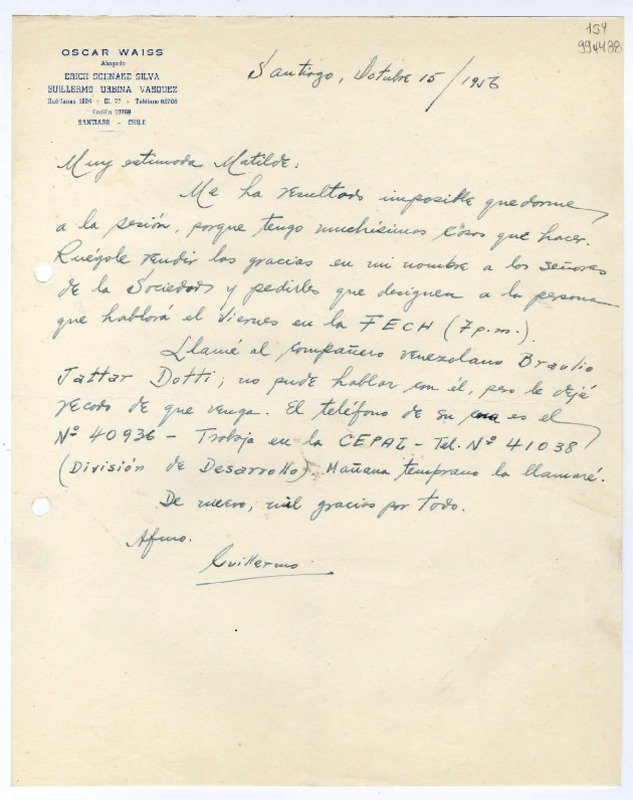 154
994438
OSCAR WAISS
Abogado
ERICH SCHNAKE SILVA
GUILLERMO URBINA VASQUEZ
Huérfanos - Of. - Teléfono
Casilla
SANTIAGO - CHILE
Santiago, Octubre 15/1956
Muy estimada Matilde:
Me ha resultado imposible quedarme
a la sesión, porque tengo muchísimas cosas que hacer.
Ruégole rendir las gracias en mi nombre a los señores
de la Sociedad y pedirles que designen a la persona
que hablará el Viernes en la FECH (7 p.m.).
Llamé al compañero venezolano Braulio
Jattar Dotti; no pude hablar con él, pero le dejé
recado de que venga. El teléfono de su casa es el
Nº 40936 - Trabaja en la CEPAL - Tel. Nº 41038
(División de Desarrollo). Mañana temprano la llamaré.
De nuevo, mil gracias por todo.
Afmo.
Guillermo.